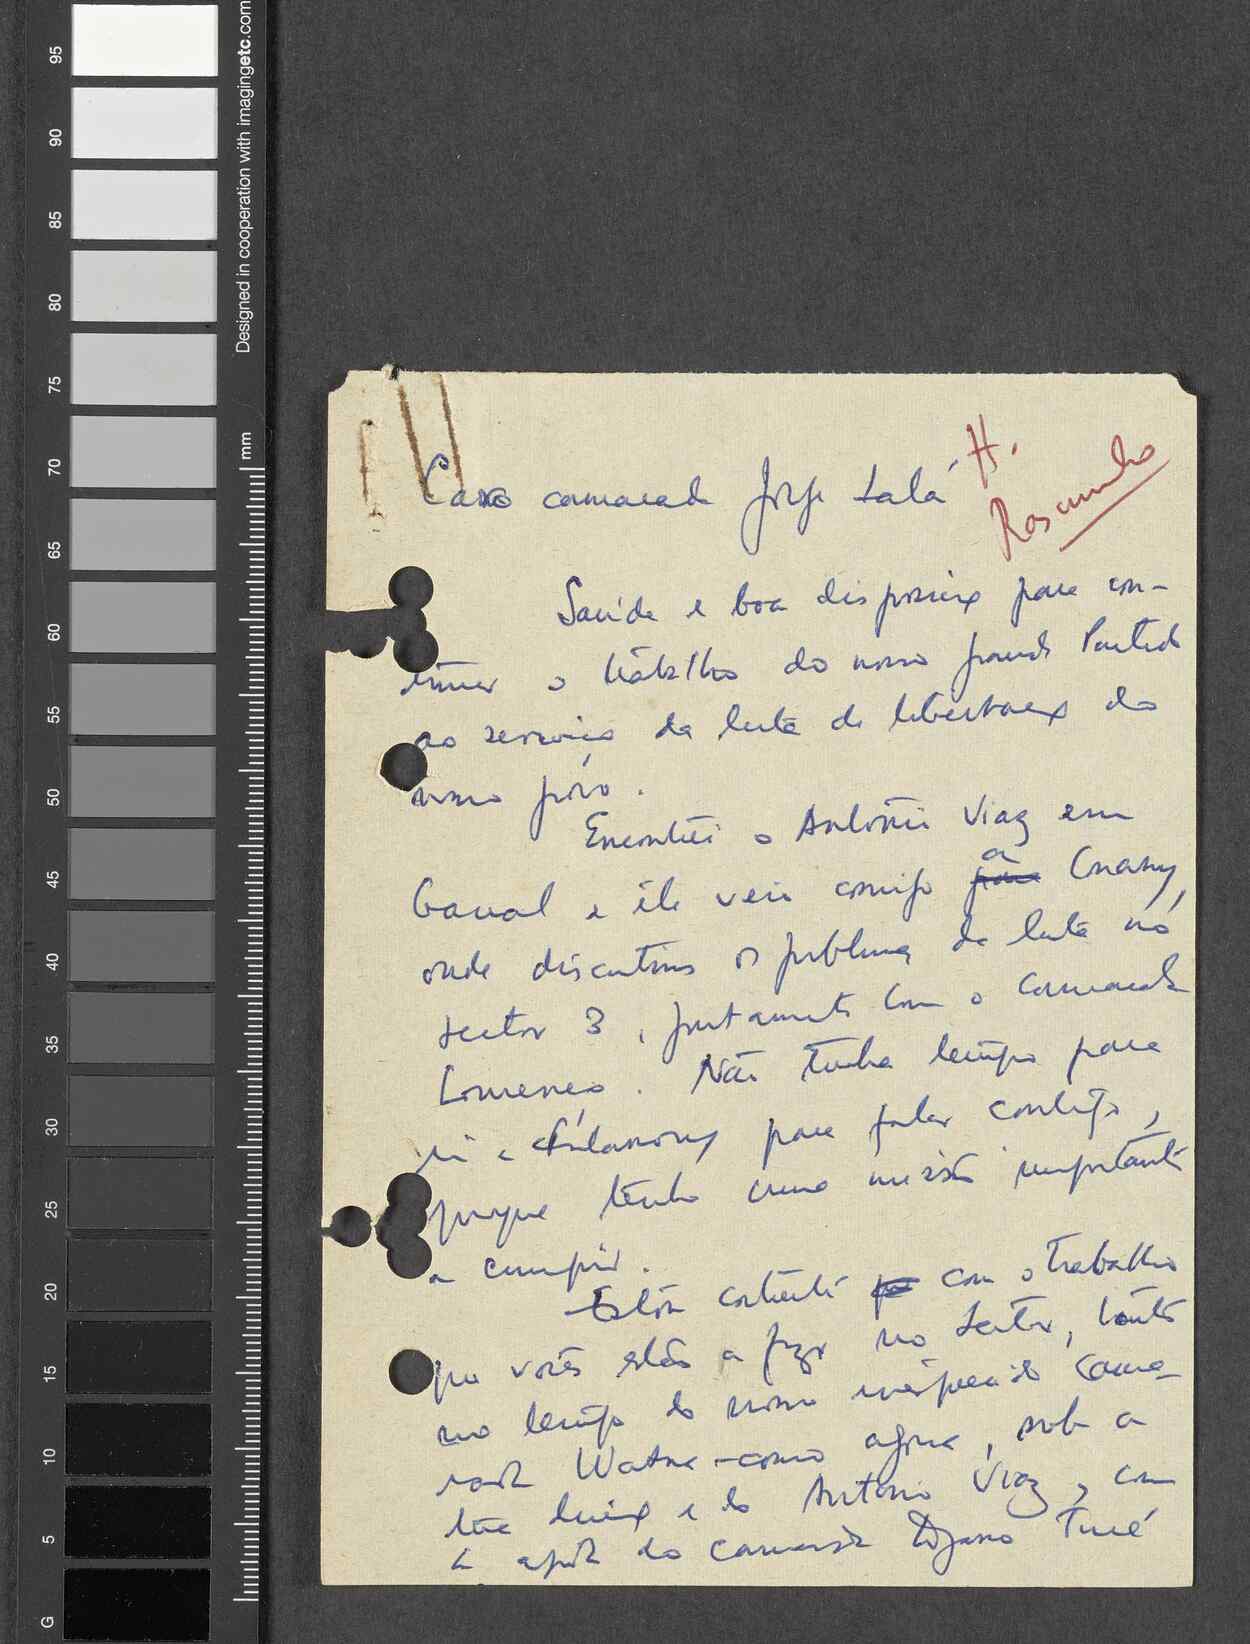 Designed in cooperation with imagingetc.com
mm
95
90
85
80
75
70
65
60
55
50
45
40
35
30
25
20
15
10
5
G
H.
Caro camarada Jorge Lalá
Saúde e boa disposição para con-
tinuar o trabalho do nosso grande Partido
ao serviço da luta de libertação do
nosso pôvo.
Encontrei o António Viaz em
Gaoual e êle veio comigo para a Cnakry,
onde discutimos os problemas da luta no
sector 3, juntamente com o camarada
Lourenço. Não tinha tempo para
ir a para falar contigo,
porque tenho uma missão importante
a cumprir.
Estou contente com o trabalho
que vocês estão a fazer no sector, tanto
no tempo do nosso inesquecido cama-
rada como agora, sob a
tua direcção e do António Viaz, com
o apoio do camarada Turé